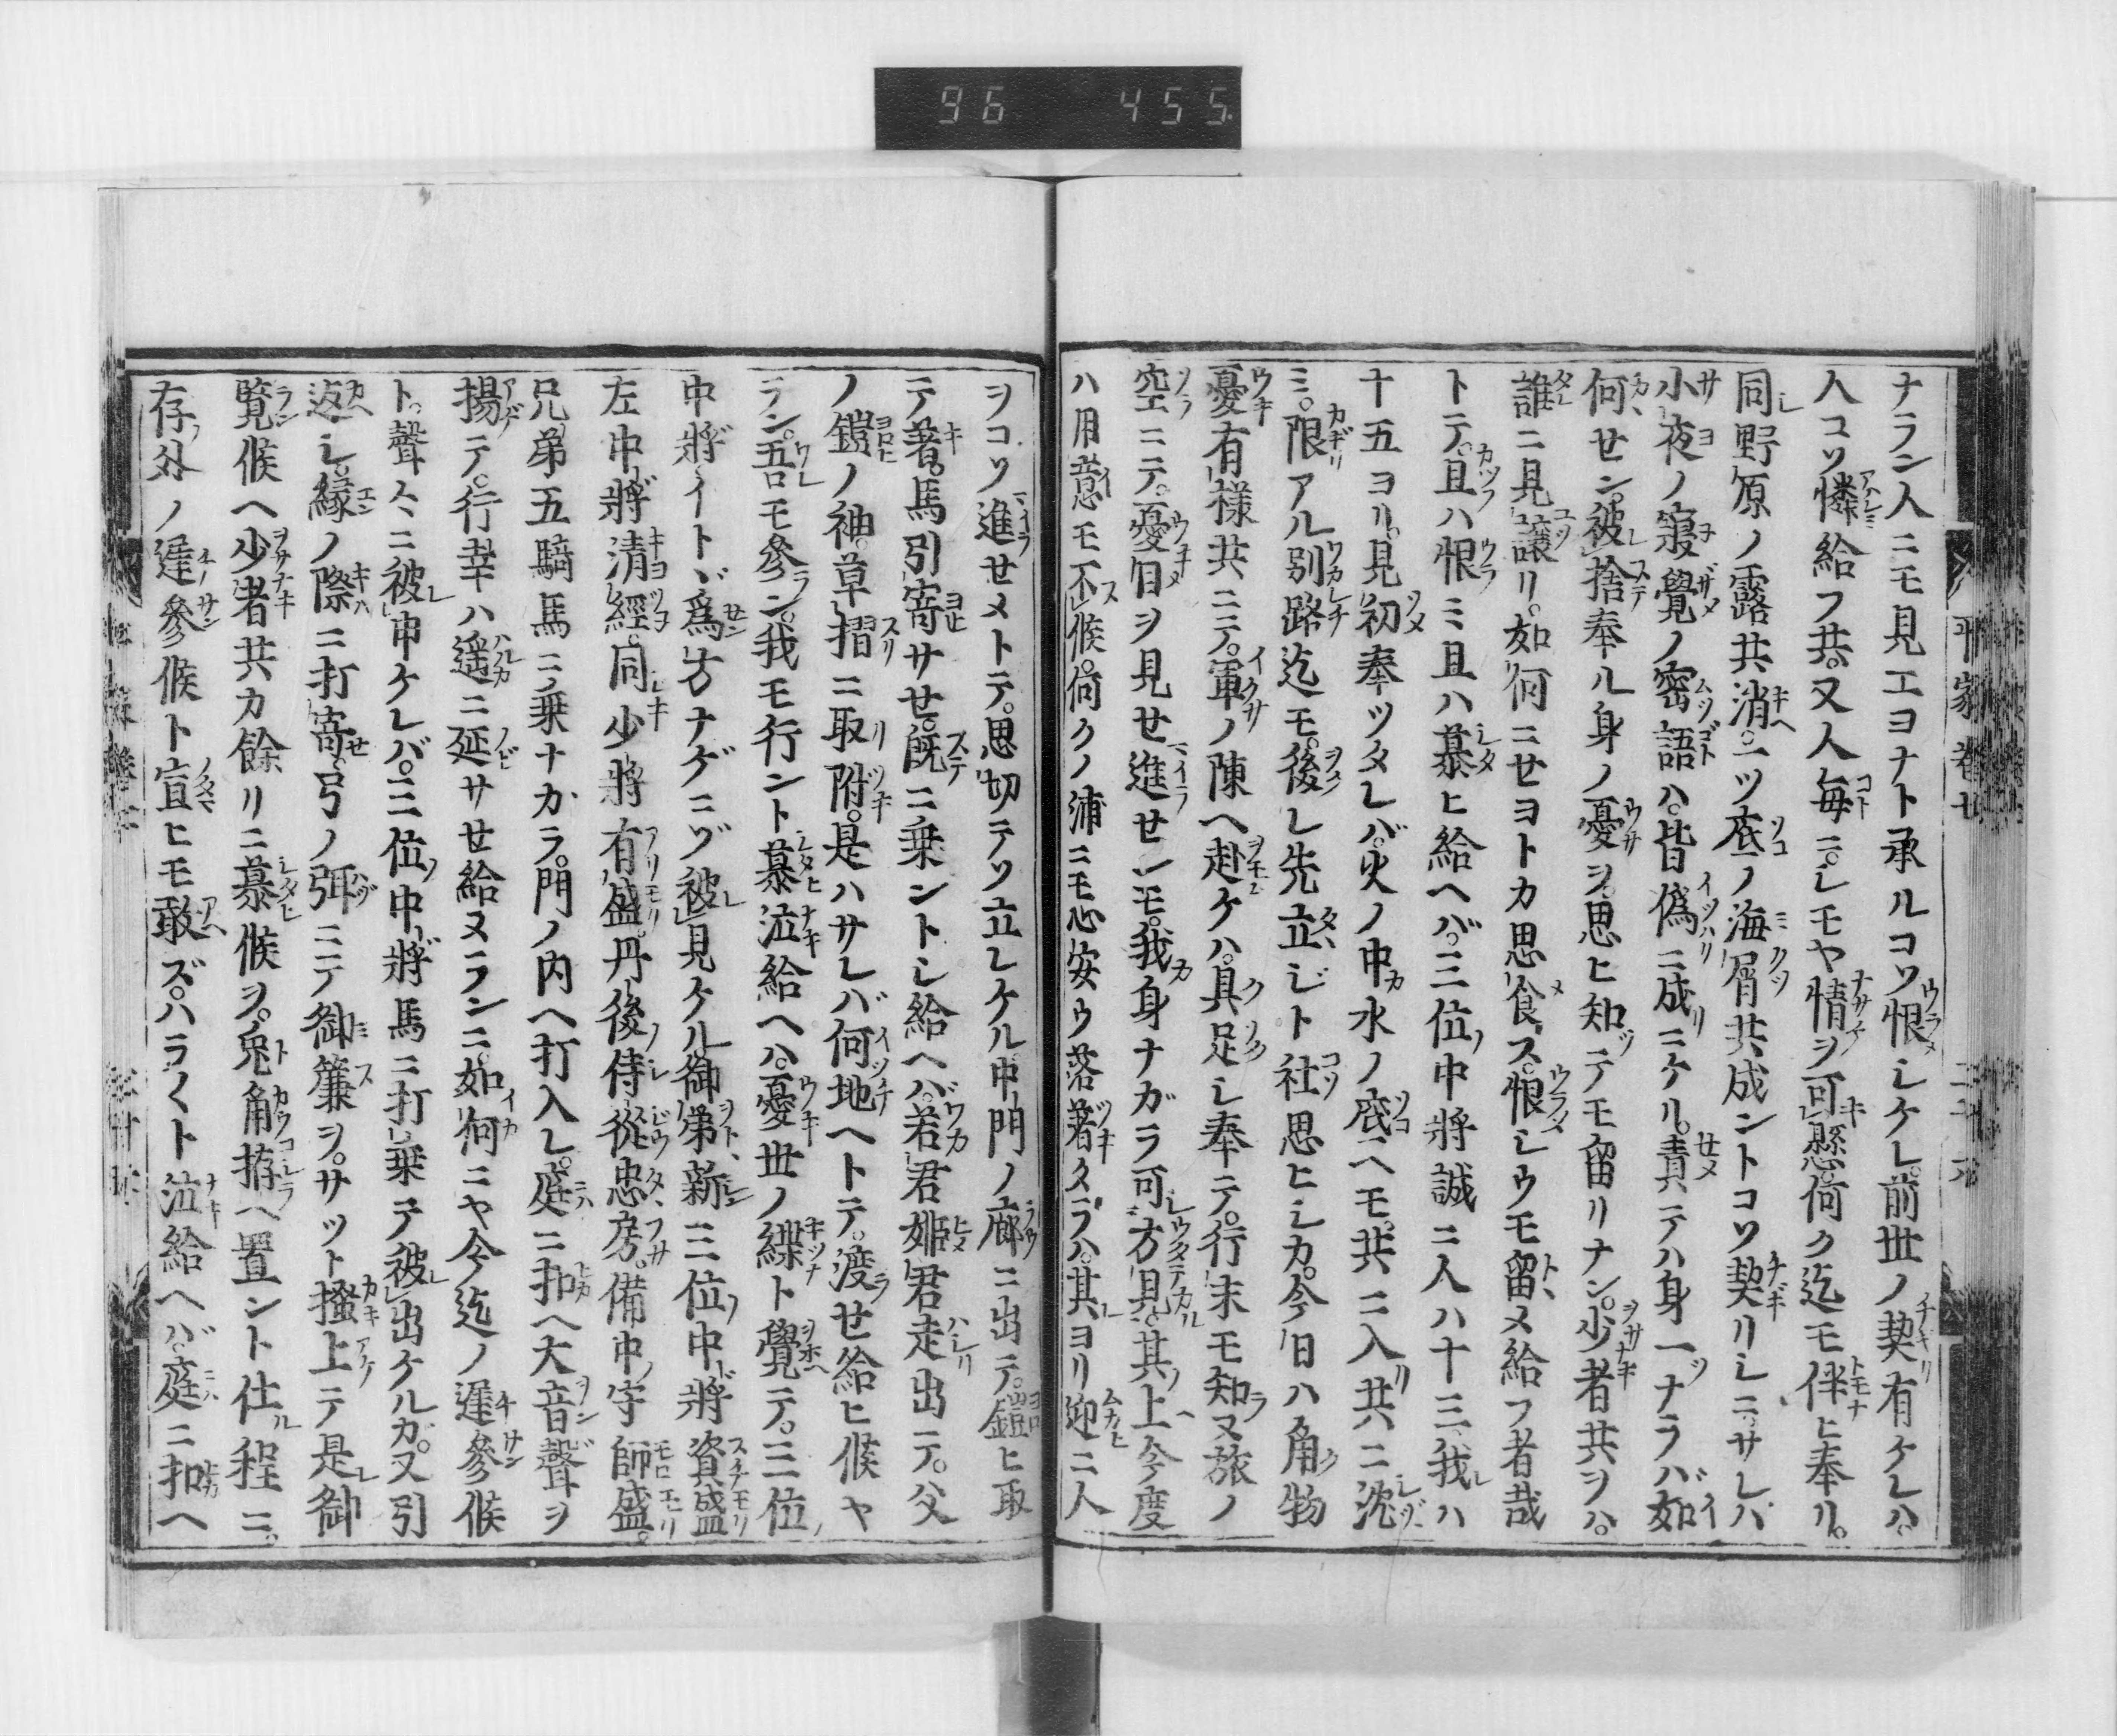 96 455
ナラン人ニモ見エヨナト承ルコソ恨シケレ前世ノ契有ケレハ
人コソ憐給フ共又人毎ニシモヤ情ヲ可懸何ク迄モ伴ヒ奉リ
同野原ノ露共消一ツ底ノ海屑共成ントコソ契リシニサレハ
小夜ノ寢覺ノ密語ハ皆僞ニ成ニケル責テハ身一ナラハ如
何セン被捨奉ル身ノ憂ヲ思ヒ知テモ留リナン少者共ヲハ
誰ニ見譲リ如何ニセヨトカ思食ス恨シウモ留メ給フ者哉
トテ且ハ恨ミ且ハ慕ヒ給ヘバ三位中將誠ニ人ハ十三我ハ
十五ヨリ見初奉ツタレバ火ノ中水ノ底ヘモ共ニ入共ニ沈
ミ限アル別路迄モ後レ先立ジト社思ヒシカ今日ハ角物
憂有様共ニテ軍ノ陳ヘ赴ケハ具足シ奉テ行末モ知ヌ旅ノ
空ニテ憂目ヲ見せ進センモ我身ナガラ可方見其上今度
ハ用意モ不候何クノ浦ニモ心安ウ落著タラハ其ヨリ迎ニ人
平家巻七
ヲコソ進せメトテ思切テソ立レケル中門ノ廊ニ出テ鎧ヒ取
テ著馬引寄サせ既ニ乗ントシ給ヘバ若君姫君走出テ父
ノ鎧ノ袖草摺ニ取附是ハサレバ何地ヘトテ渡せ給ヒ候ヤ
ラン吾モ參ン我モ行ント慕泣給ヘハ憂世ノ緤ト覺テ三位
中將イトヾ爲方ナゲニゾ被見ケル御弟新三位中將資盛
左中將清經同少將有盛丹後侍從忠房備中守師盛
兄弟五騎馬ニ乗ナカラ門ノ内ヘ打入レ庭ニ扣ヘ大音聲ヲ
揚テ行幸ハ遥ニ延サせ給ヌランニ如何ニヤ今迄ノ遲參候
ト聲々ニ被申ケレバ三位中將馬ニ打乗テ被出ケルカ又引
返シ縁ノ際ニ打寄弓ノ弭ニテ御簾ヲサット搔上テ是御
覧候ヘ少者共カ餘リニ慕候ヲ兎角拵ヘ置ント仕ル程ニ
存外ノ遲參候ト宣ヒモ敢ズハラ〱ト泣給ヘバ庭ニ扣ヘ